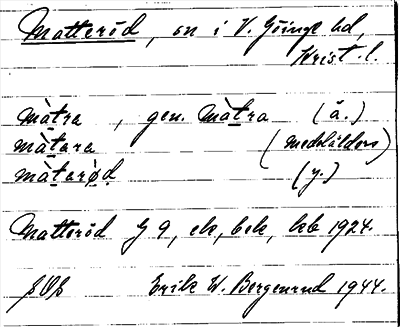 Matteröd, sn i V. Göinge hd,
Krist. l.
màtra , gen. màtra (ä.)
màtara (medelålders)
màtarød (y.)
Matteröd G 9, ek, bek, kb 1924.
Erik W. Bergenrud 1944.